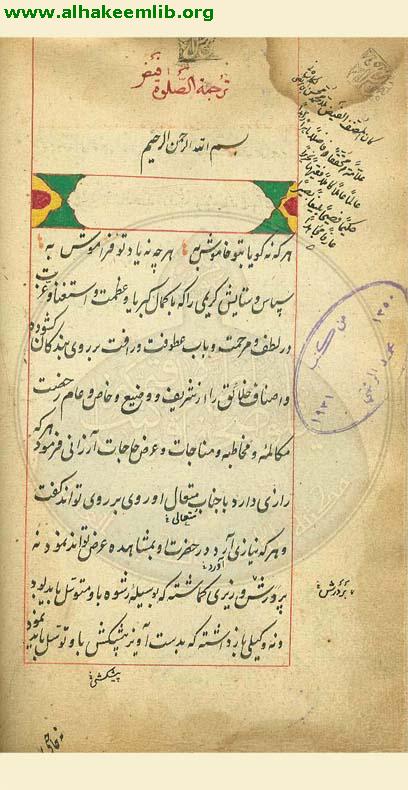 www.alhakeemlib.org
ترجمة الصلوة فيض
بسم الله الرحمن الرحیم
هر که نه کویا بتو خاموش به هر چه نه یاد تو فراموش به
سپاس و ستایش کریمی را که با کمال کبریا و عظمت و استغنا و عزت
در لطف و مرحمت و باب عطوفت و رافت بر روی بندکان کشوده
و اصناف خلائق را از شریف و وضیع و خاص و عام رخصت
مکالمه و مخاطبه و مناجات و عرض حاجات ارزانی فرمود هر که
رازی دارد با جناب متعال او روی بر روی تواند کفت
متعالی
و هر که نیازی آرد در حضرت او بمشاهده عرض تواند نمود نه
آورد
پرورش وزیری کماشته که بوسیله رشوه باو متوسل باید بود
بر درش
و نه وکیلی بازداشته که بدست آویز پیشکش باو توسل باید نمود
پیشکشی
من کتب
محمد
۱۳۵۰
۱۹۳۱